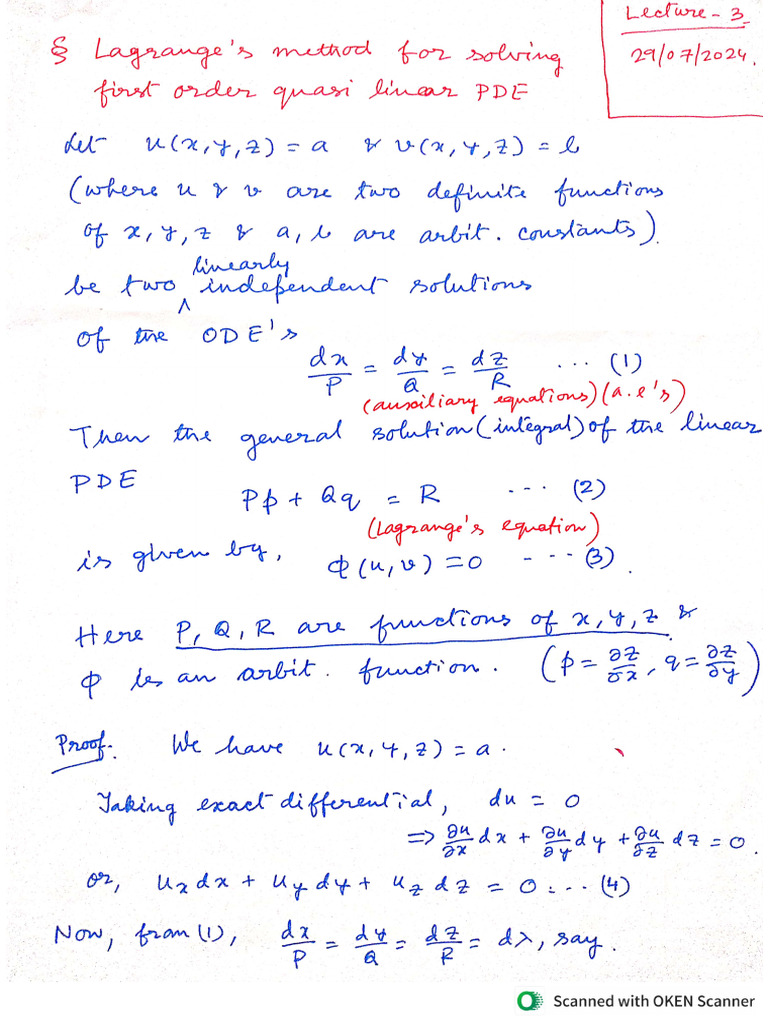 Lecture - 3
29/07/2024.
§ Lagrange's method for solving
first order quasi linear PDE
Let u(x, y, z) = a & v(x, y, z) = b
(where u & v are two definite functions
of x, y, z & a, b are arbit. constants).
be two ^ linearly independent solutions
of the ODE's
dx/P = dy/Q = dz/R ... (1)
(auxiliary equations) (a.e's)
Then the general solution (integral) of the linear
PDE
Pp + Qq = R ... (2)
(Lagrange's equation)
is given by, φ(u, v) = 0 --- (3).
Here P, Q, R are functions of x, y, z &
φ is an arbit. function. (p = ∂z/∂x, q = ∂z/∂y)
Proof. We have u(x, y, z) = a.
Taking exact differential, du = 0
=> ∂u/∂x dx + ∂u/∂y dy + ∂u/∂z dz = 0.
or, u_x dx + u_y dy + u_z dz = 0 ... (4)
Now, from (1), dx/P = dy/Q = dz/R = dλ, say.
Scanned with OKEN Scanner